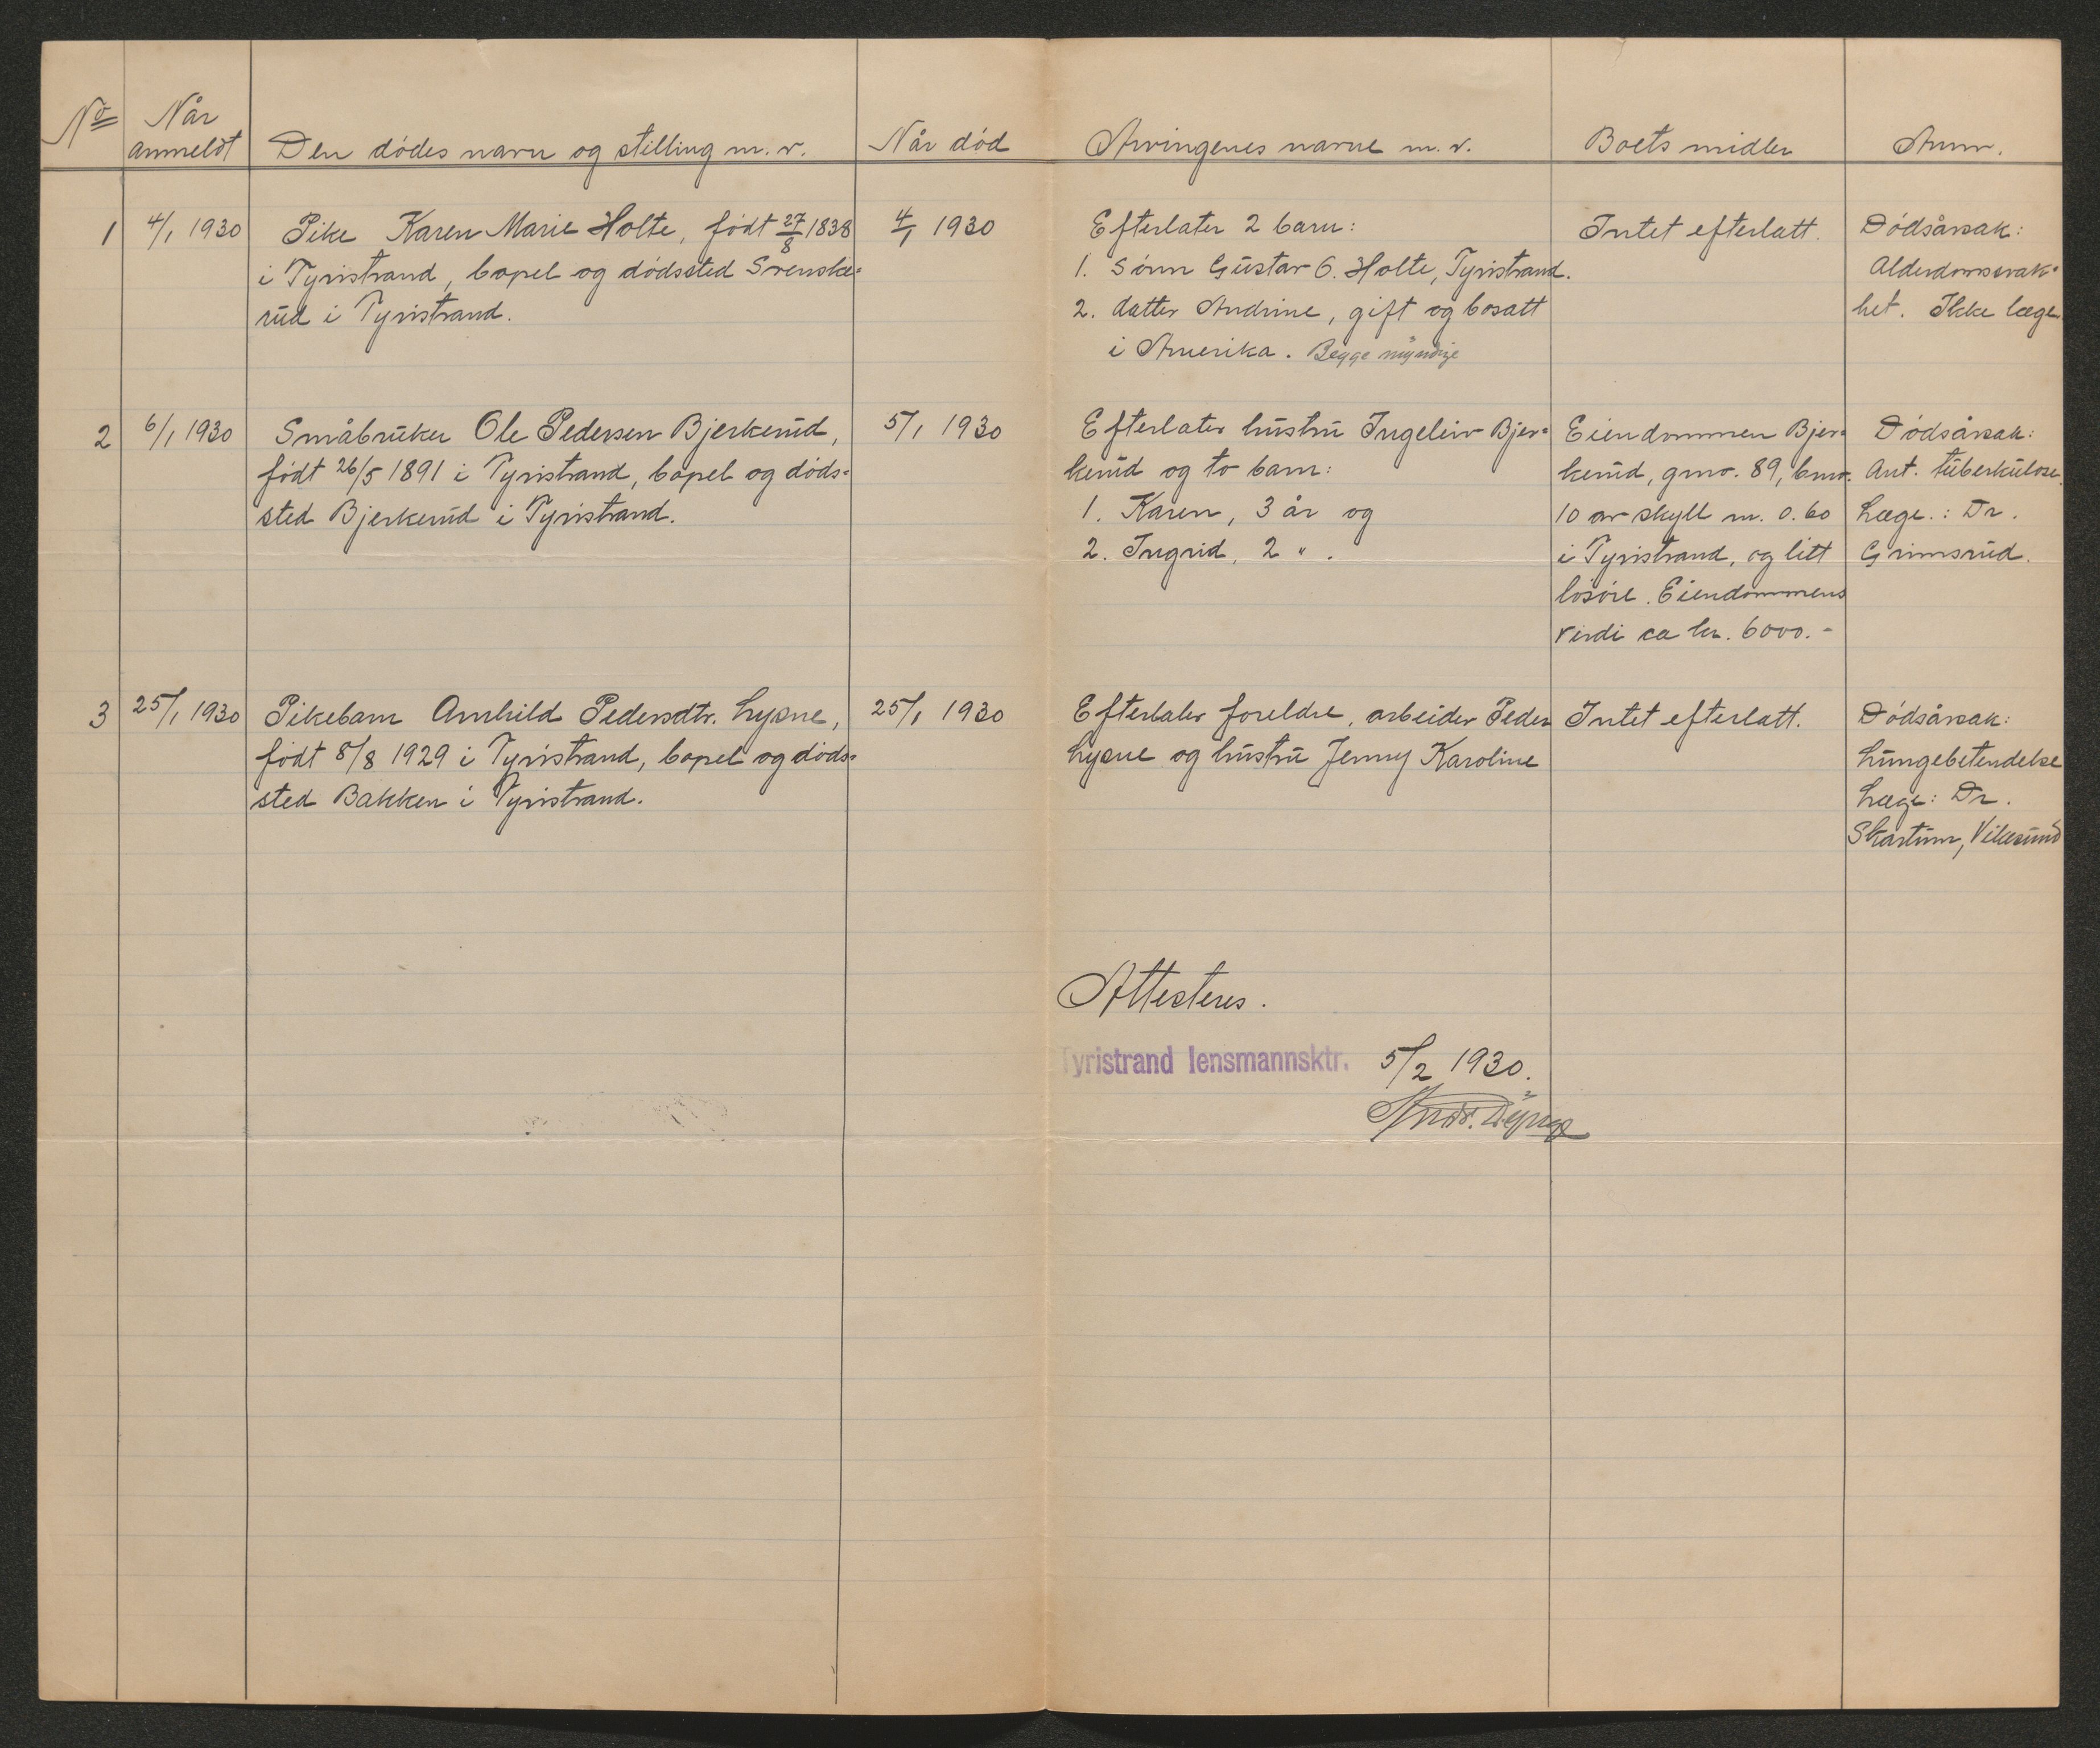 No Når anmeldt Den dødes navn og stilling m.v. Når død Arvingenes navne m.v. Boets midler Anm.
1 4/1 1930 Pike Karen Marie Holte, født 27/8 1838
i Tyristrand, bopel og dødssted Svenske-
rud i Tyristrand.
4/1 1930
Efterlater 2 barn:
1. Sønn Gustav O. Holte, Tyristrand.
2. datter Andrine, gift og bosatt
i Amerika. Begge myndige
Intet efterlatt.
Dødsårsak:
Alderdomssvak-
het. Ikke læge
2 6/1 1930 Småbruker Ole Pedersen Bjerkerud,
født 26/5 1891 i Tyristrand, bopel og døds-
sted Bjerkerud i Tyristrand.
5/1 1930
Efterlater hustru Ingeleiv Bjer-
kerud og to barn:
1. Karen, 3 år og
2. Ingrid, 2 " .
Eiendommen Bjer-
kerud, gnr. 89, bnr.
10 av skyll m. 0.60
i Tyristrand, og litt
løsøre. Eiendommens
verdi ca kr. 6000.-
Dødsårsak:
Ant. tuberkulose.
Læge.: Dr.
Grimsrud.
3 25/1 1930 Pikebarn Arnhild Pedersdtr. Lysne,
født 8/8 1929 i Tyristrand, bopel og døds-
sted Bakken i Tyristrand.
25/1 1930
Efterlater foreldre, arbeider Peder
Lysne og hustru Jenny Karoline
Intet efterlatt.
Dødsårsak:
Lungebetendelse
Læge: Dr.
Skartum, Vikesund
Attesteres.
Tyristrand lensmannsktr. 5/2 1930.